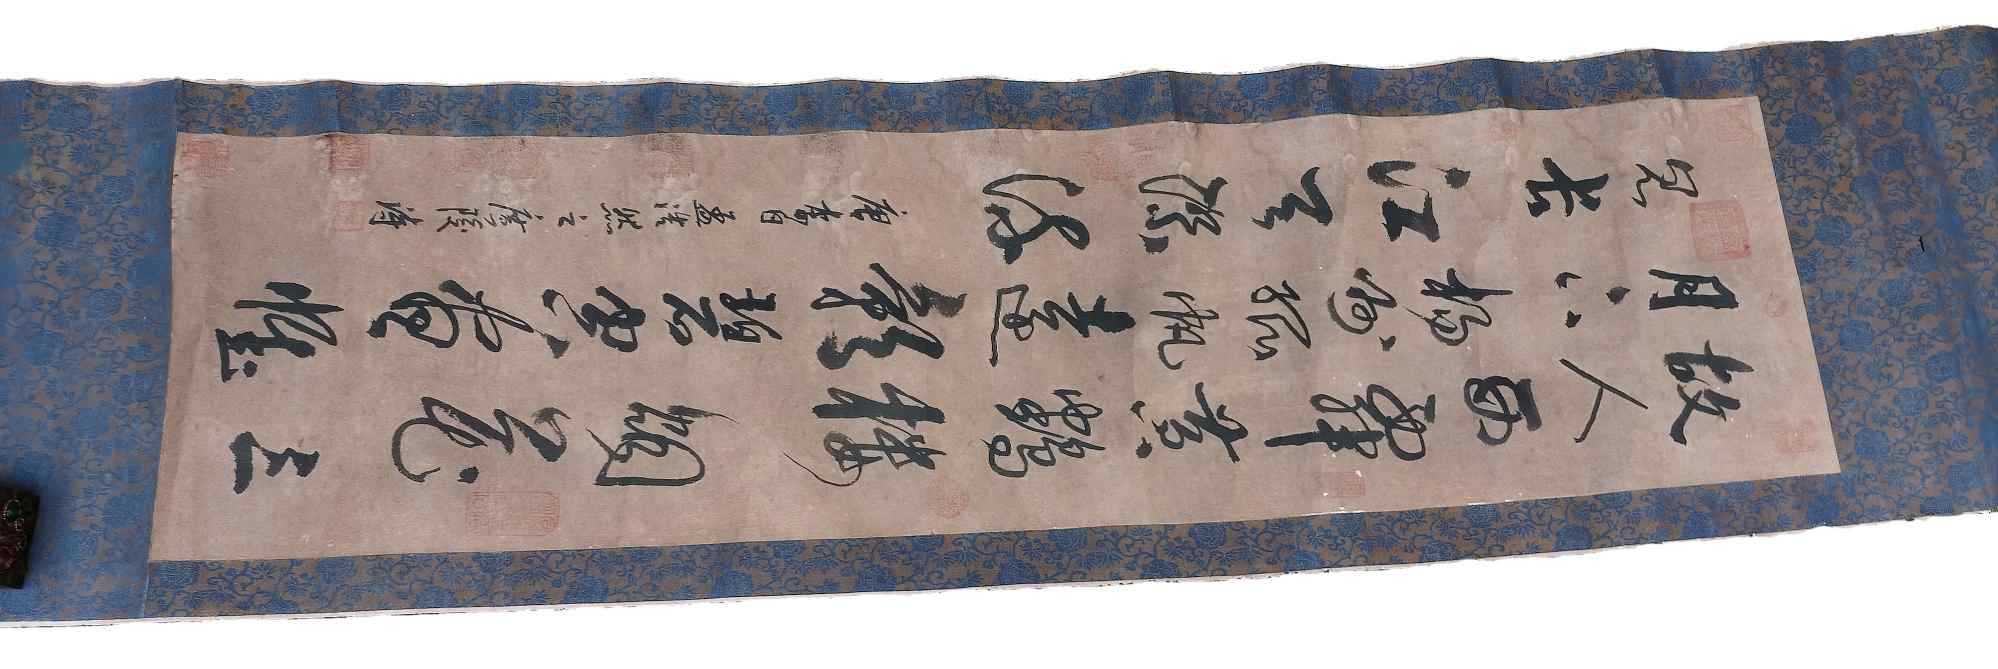 故人西辭黃鶴樓烟花三
月下揚州孤帆遠影碧空盡唯
見長江天際流
唐李白孟浩然之廣陵詩